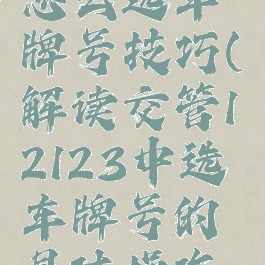 怎么选车
牌号技巧(
解读交管1
2123中选
车牌号的